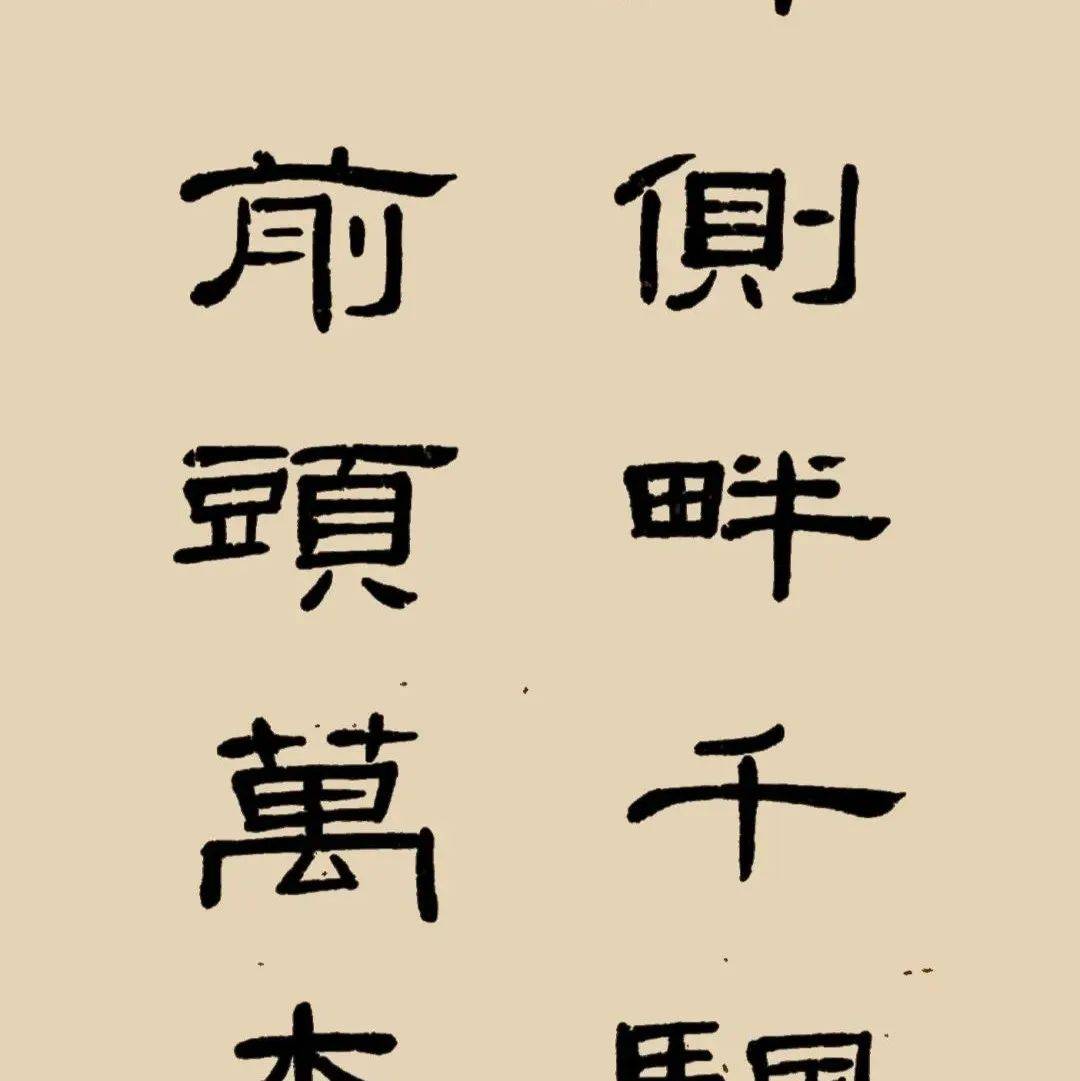 側畔千
前頭萬